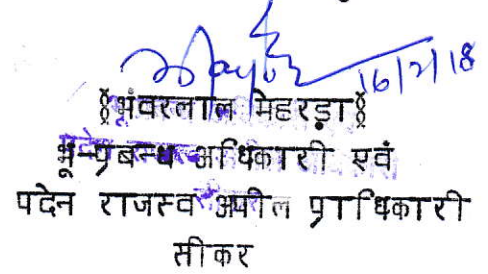 16/2/18
§भंवरलाल मिहरड़ा§
भू-प्रबन्ध अधिकारी एवं
पदेन राजस्व अपील प्राधिकारी
सीकर